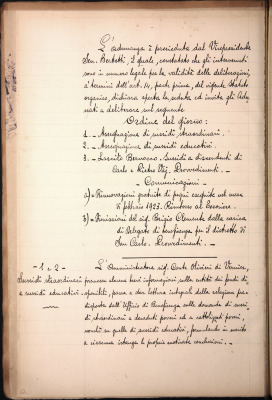 L'adunanza è presieduta dal Vicepresidente
Sen. Berbetti, il quale, constatato che gli intervenuti
sono in numero legale per la validità delle deliberazioni,
a' termini dell'art. 14, parte prima, del vigente Statuto
organico, dichiara aperta la seduta ed invita gli Adu
nati a deliberare sul seguente
Ordine del giorno:
1. - Assegnazione di sussidi straordinari.
2. - Assegnazione di sussidi educativi.
3. - Sussidi a discendenti di
Carlo e Pietro Provvedimenti. -
- Comunicazioni -
a) - Rinnovazioni gratuite di pegni eseguite nel mese
di febbraio 1923. - Rimborso al Tesoriere. -
b) - Dimissioni del sig. Brigio Clemente dalla carica
di Delegato di beneficenza per il distretto di
San Carlo. - Provvedimenti. -
- 1 e 2 -
Sussidi straordinari
e sussidi educativi.
L'Amministratore sig. Conte Olivieri di Vernier,
premesse alcune brevi informazioni sulla entità dei fondi di-
sponibili, passa a dare lettura integrale della relazione pre-
disposta dall'Ufficio di Beneficenza sulle domande di sussi-
di straordinari a decaduti poveri ed a cattolizzati poveri,
nonché su quelle di sussidi educativi, formulando in merito
a ciascuna istanza le proprie motivate conclusioni. -